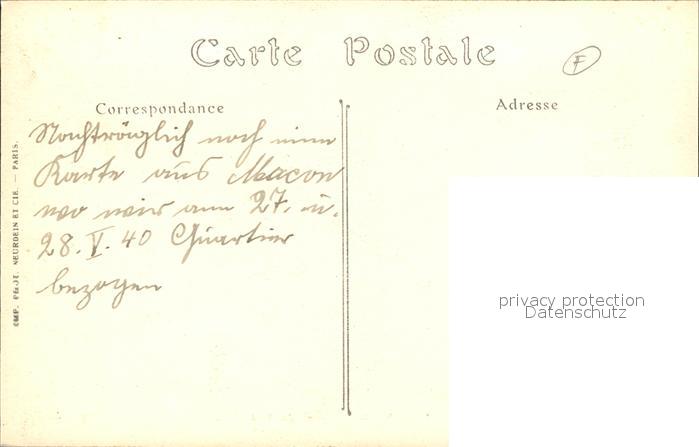 Carte Postale
F
Correspondance
Adresse
Nachträglich noch eine
Karte aus Macon
wo wir am 27. u.
28. V. 40 Quartier
bezogen
IMP. PHOT. NEURDEIN ET CIE. — PARIS.
privacy protection
Datenschutz